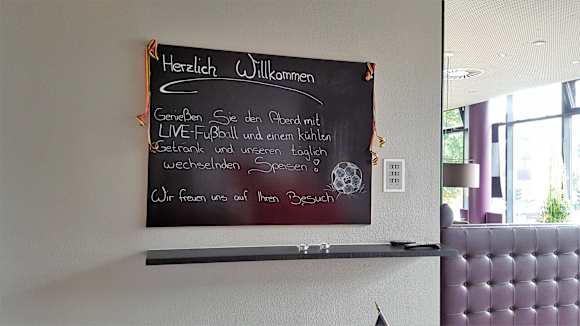 Herzlich Willkommen
Genießen Sie den Abend mit
LIVE-Fußball und einem kühlen
Getränk und unseren täglich
wechselnden Speisen!
Wir freuen uns auf Ihren Besuch